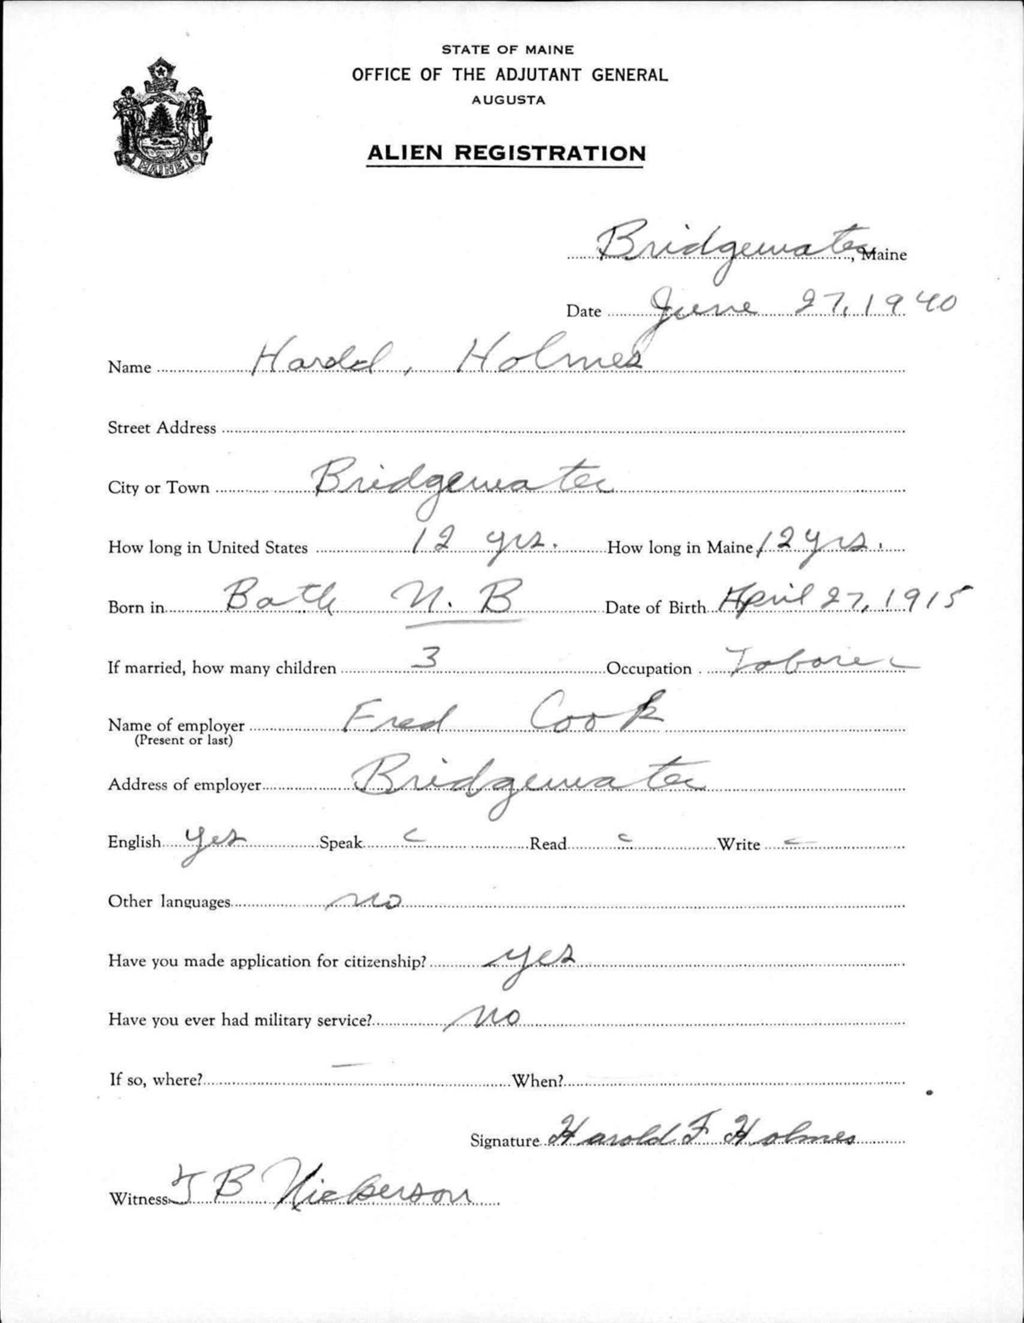 STATE OF MAINE
OFFICE OF THE ADJUTANT GENERAL
AUGUSTA
ALIEN REGISTRATION
MAINE
Bridgewater, Maine
Date June 27, 1940
Name Harold, Holmes
Street Address
City or Town Bridgewater
How long in United States 12 yrs. How long in Maine 12 yrs.
Born in Bath N. B Date of Birth April 27, 1915
If married, how many children 3 Occupation Laborer
Name of employer Fred Cook
(Present or last)
Address of employer Bridgewater
English yes Speak Read Write
Other languages no
Have you made application for citizenship? yes
Have you ever had military service? no
If so, where? — When?
Signature Harold F Holmes
Witness B Nickerson